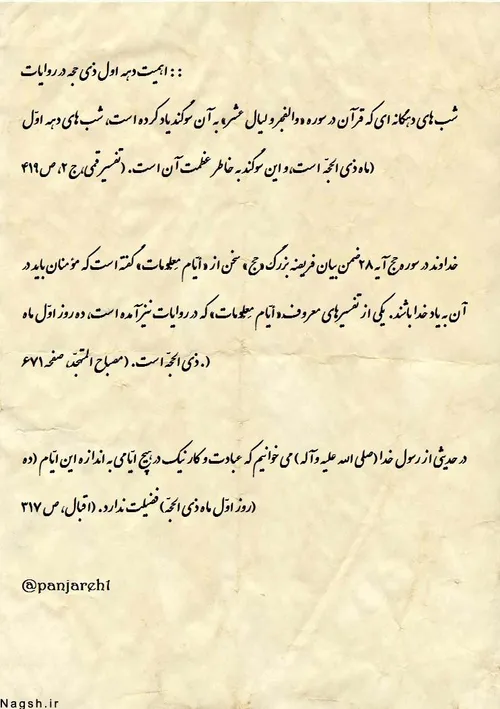 : : اهمیت دهه اول ذی حجه در روایات
شب های دهگانه ای که قرآن در سوره «والفجر و لیال عشر» به آن سوگند یاد کرده است، شب های دهه اوّل
(ماه ذی الحجّه است، و این سوگند به خاطر عظمت آن است. (تفسیر قمی، ج ۲، ص ۴۱۹
خداوند در سوره حج آیه ۲۸ ضمن بیان فریضه بزرگ «حج» سخن از «ایّام معلومات» گفته است که مؤمنان باید در
آن به یاد خدا باشند. یکی از تفسیرهای معروف «ایّام معلومات» که در روایات نیز آمده است، ده روز اوّل ماه
(. ذی الحجّه است. (مصباح المتهجّد، صفحه ۶۷۱
در حدیثی از رسول خدا (صلی الله علیه وآله) می خوانیم که عبادت و کار نیک در هیچ ایّامی به اندازه این ایّام (ده
(روز اوّل ماه ذی الحجّه) فضیلت ندارد. (اقبال، ص ۳۱۷
@panjareh1
Nagsh.ir